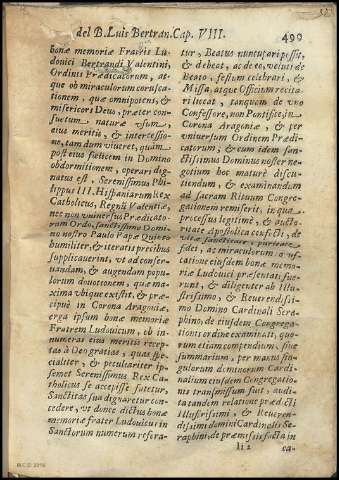 del B. Luis Bertran. Cap. VIII.
499
bonæ memoriæ Fratris Lu-
dovici Bertrandi Valentini,
Ordinis Prædicatorum, at-
que ob miraculorum corusca-
tionem, quæ omnipotens, &
misericors Deus, præter con-
suetum naturæ usum,
eius meritis, & intercessio-
ne, tam dum viveret, quàm
post eius fœlicem in Domino
obdormitionem, operari dig-
natus est, Serenissimus Phi-
lippus III. Hispaniarum Rex
Catholicus, Regnũ Valentiæ,
nec non universus Prædicato-
rum Ordo, sanctissimo Domi-
no nostro Paulo Papæ Quinto
humiliter, & iteratis precibus
supplicaverint, vt ad conser-
vandam, & augendam popu-
lorum devotionem, quæ ma-
xima vbique existit, & præ-
cipuè in Corona Aragoniæ,
erga ipsum bonæ memoriæ
Fratrem Ludovicum, ob in-
numeras eius meritis recep-
tas à Deo gratias, quas spe-
cialiter, & peculiariter ip-
semet Serenissimus Rex Ca-
tholicus se accepisse fatetur,
Sanctitas sua dignaretur con-
cedere, vt donec dictus bonæ
memoriæ frater Ludovicus in
Sanctorum numerum refera-
tur, Beatus nuncupari possit,
& debeat, ac de eo, velut de
Beato, festum celebrari, &
Missa, atque Officium recita-
ri liceat, tanquam de vno
Confessore, non Pontifice, in
Corona Aragoniæ, & per
vniversum Ordinem Prædi-
catorum; & cum idem san-
ctissimus Dominus noster ne-
gotium hoc maturè discu-
tiendum, & examinandum
ad sacram Rituum Congre-
gationem remiserit, in qua
processus legitimè, & aucto-
ritate Apostolica confecti, de
vitæ sanctitate, puritate
fidei, ac miraculorum a us-
catione eiusdem bonæ memo-
riæ Ludovici præsentati fue-
runt, & diligenter ab Illu-
strissimo, & Reverendissi-
mo Domino Cardinali Sera-
phino, de eiusdem Congrega-
tionis ordine examinati, quo-
rum etiam compendium, sive
summarium, per manus sin-
gulorum dominorum Cardi-
nalium eiusdem Congregatio-
nis transmissum fuit, audi-
ta tandem relatione prædicti
Illustrissimi, & Reveren-
dissimi domini Cardinalis Se-
raphini, de præmissis facta in
Ii 2
ca-